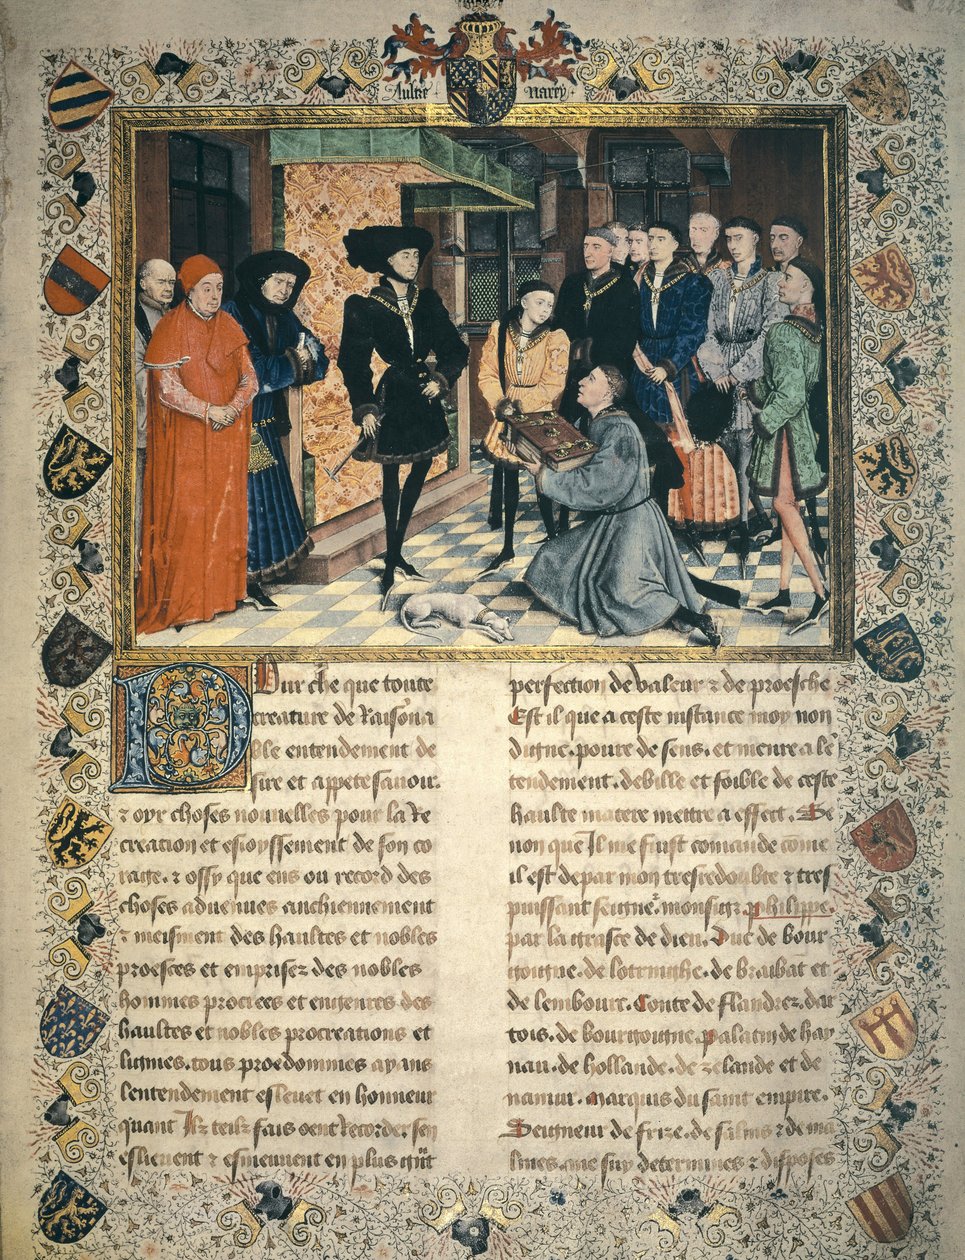 Aultre narey
Pour ce que toute
creature de Raison a
ble entendement de
sire et appete savoir.
et oyr choses nouvelles pour la Re
creation et esioyssement de son co
rage. et ossy que ens ou record des
choses advenues anchiennement
et meisment des haultes et nobles
proesses et emprises des nobles
hommes procrees et engenres des
haultes et nobles procreations et
lignies. tous proedommes ayans
lentendement eslevet en honneur
quant Ilz telz fais oent Recorder. sen
eslievent et esmevent en plus
perfection de valeur et de proesche
Est il que a ceste instance moy non
digne. povre de sens. et meure al
tendement. debille et foible de ceste
haulte matere mettre a effect. Se
non que Il me fust comande come
il est de par mon tresredoubte et tres
puissant seigneur monsigneur Philippe.
par la grasce de dieu. Duc de bour
gongne. de lotringhe. de brabat et
de lembourc. Conte de flandrez. dar
tois. de bourgongne. palatin de hay
nau. de hollande. de zelande et de
namur. Marquis du saint empire.
Seigneur de frize. de salins et de ma
lines. que suy determines et disposes